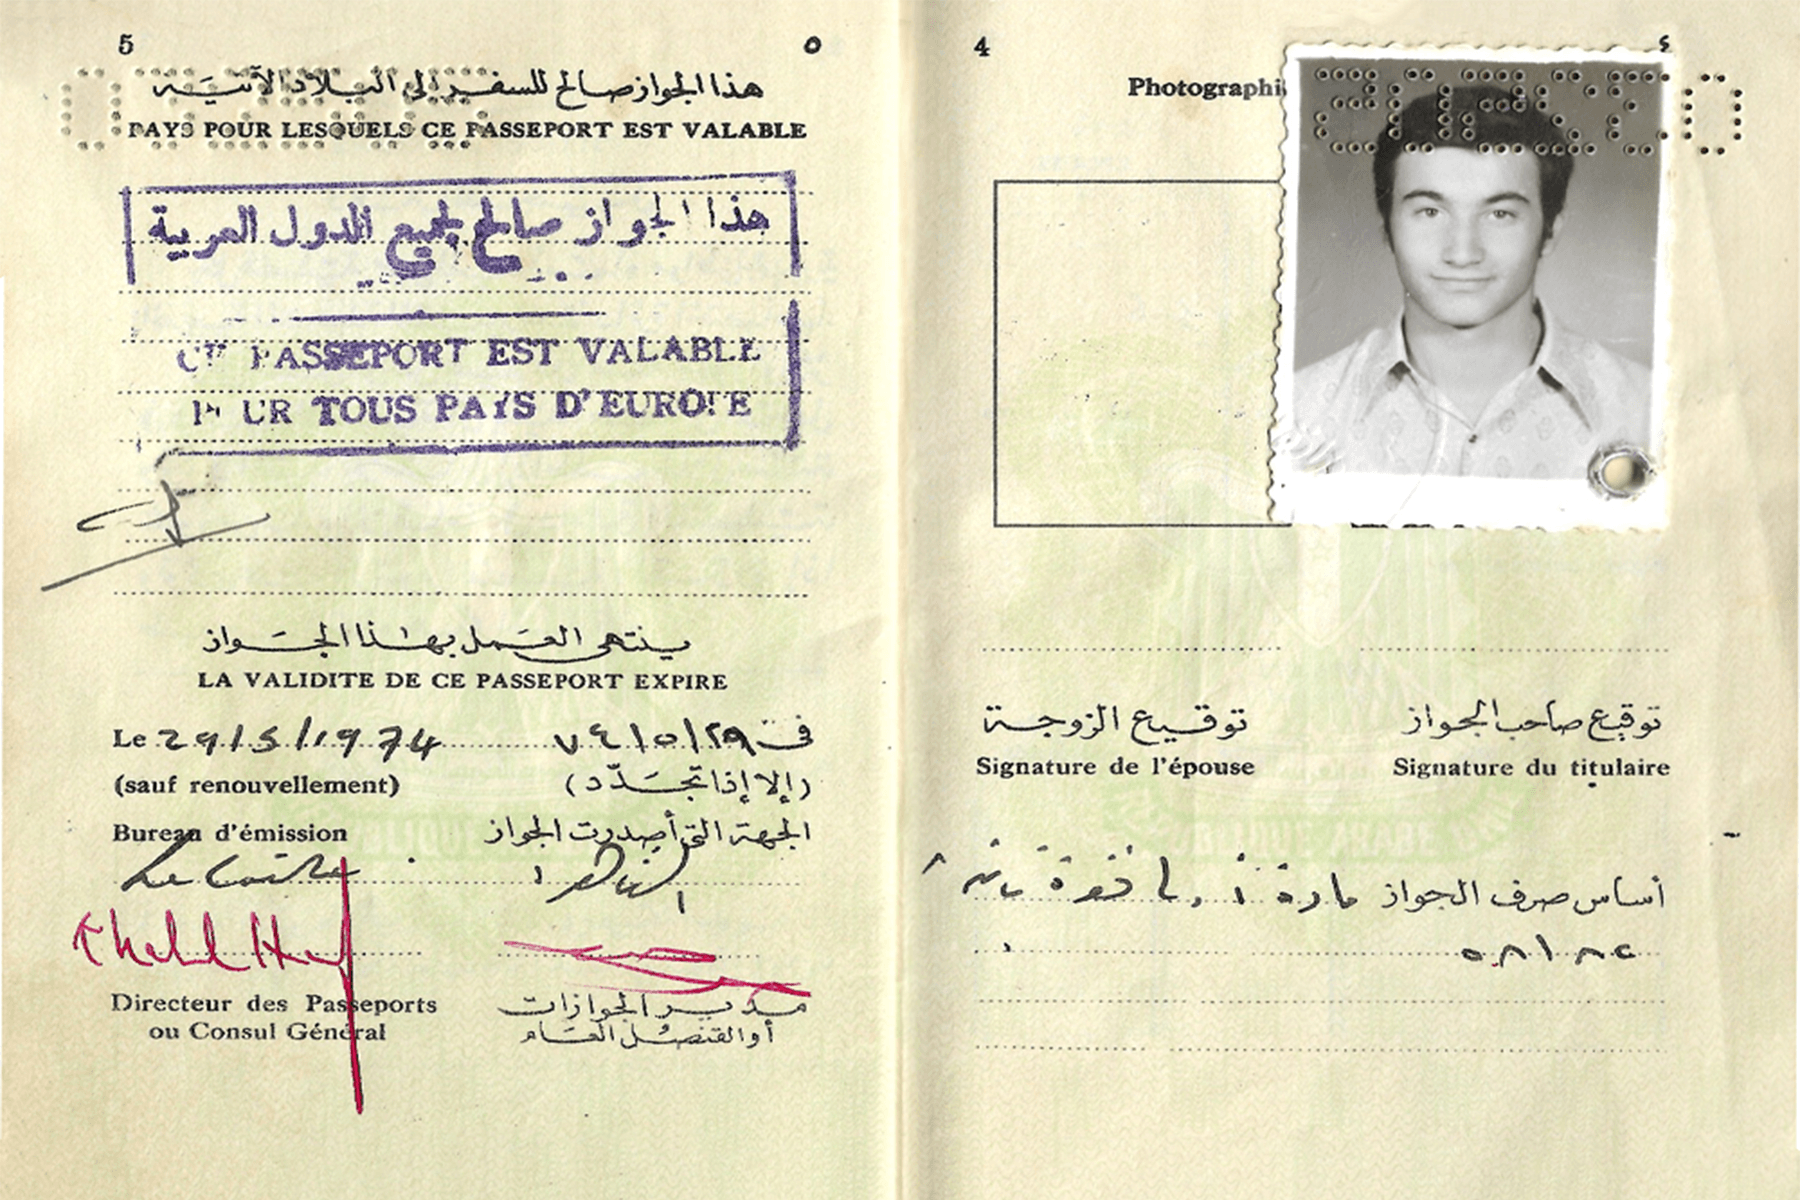 5 ٥
هذا الجواز صالح للسفر إلى البلاد الآتية
PAYS POUR LESQUELS CE PASSEPORT EST VALABLE
هذا الجواز صالح لجميع الدول العربية
CE PASSEPORT EST VALABLE
POUR TOUS PAYS D'EUROPE
ينتهى العمل بهذا الجواز
LA VALIDITE DE CE PASSEPORT EXPIRE
Le 29/5/1974 فى ٧٤/٥/٢٩
(sauf renouvellement) (إلا إذا تجدّد)
Bureau d'émission الجهة التى أصدرت الجواز
Le Caire
Directeur des Passeports مدير الجوازات
ou Consul Général أو القنصل العام
4 ٤
Photographi
توقيع الزوجة توقيع صاحب الجواز
Signature de l'épouse Signature du titulaire
أساس صرف الجواز